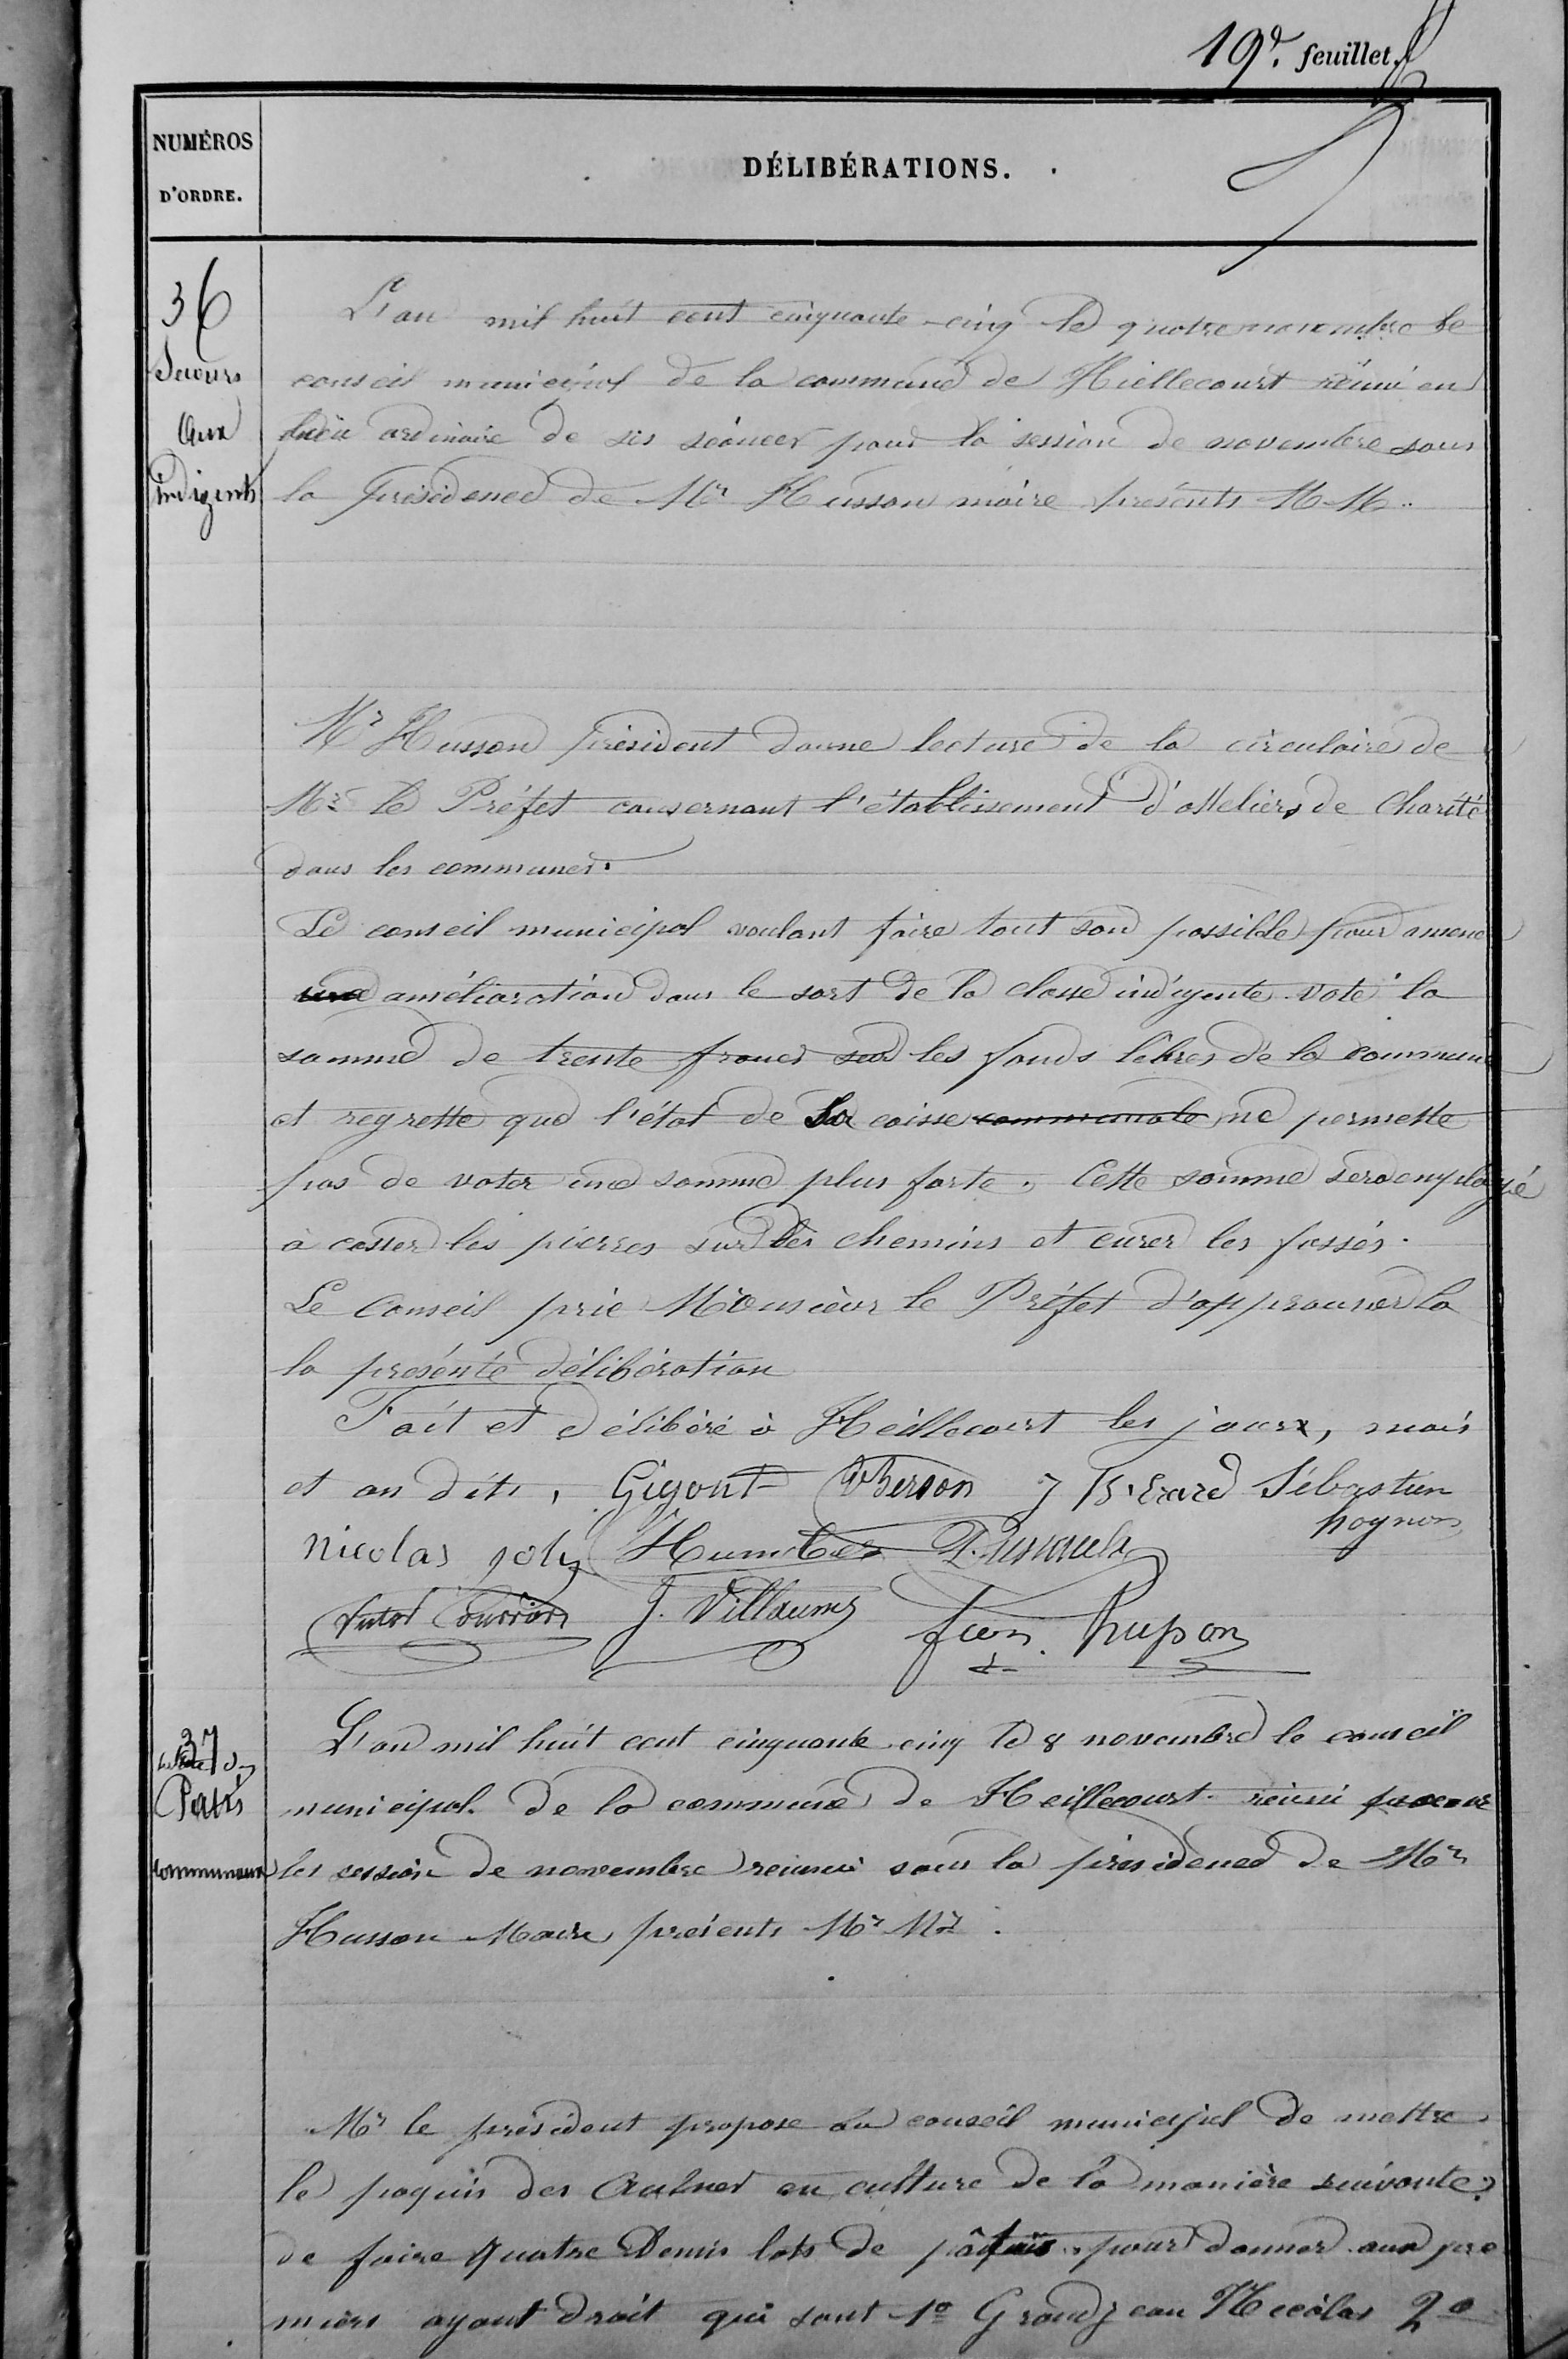 19e. feuillet.
NUMÉROS
D'ORDRE.
DÉLIBÉRATIONS.
36
Secours
aux
indigents
L'an mil huit cent cinquante-cinq le quatre novembre le
conseil municipal de la commune de Hiellecourt réuni en
lieu ordinaire de ses séances pour la session de novembre sous
la présidence de Mr Husson maire présents M M.
Mr Husson président donne lecture de la circulaire de
Mr le Préfet consernant l'établissement d'atteliers de Charité
dans les communes.
Le conseil municipal voulant faire tout son possible pour amener
une amélioration dans le sort de la classe indigente vote la
somme de trente francs sur les fonds libres de la commune
et regrette que l'état de sa caisse communale ne permette
pas de voter une somme plus forte. Cette somme sera employé
à casser les pierres sur les chemins et curer les fossés.
Le Conseil prie Monsieur le Préfet d'approuver la
la présente délibération
Fait et délibéré à Heillecourt les jours, mois
et an dits, Gigout Therson J B. Erard Sébastien
hognon
Nicolas joly Humbert
Courrier J. Villaume Jean husson
37
Patis
communaux
L'an mil huit cent cinquante cinq le 8 novembre le conseil
municipal de la commune de Heillecourt réuni pour
les session de novembre réuni sous la présidence de Mr
Husson Maire présents Mr Mr.
Mr le président propose au conseil municipal de mettre
le paquis des Aulnes en culture de la manière suivante,
de faire quatre Demis lots de pâtis pour donner aux pre
miers ayant droit qui sont 1o Grandjean Nicolas 2o